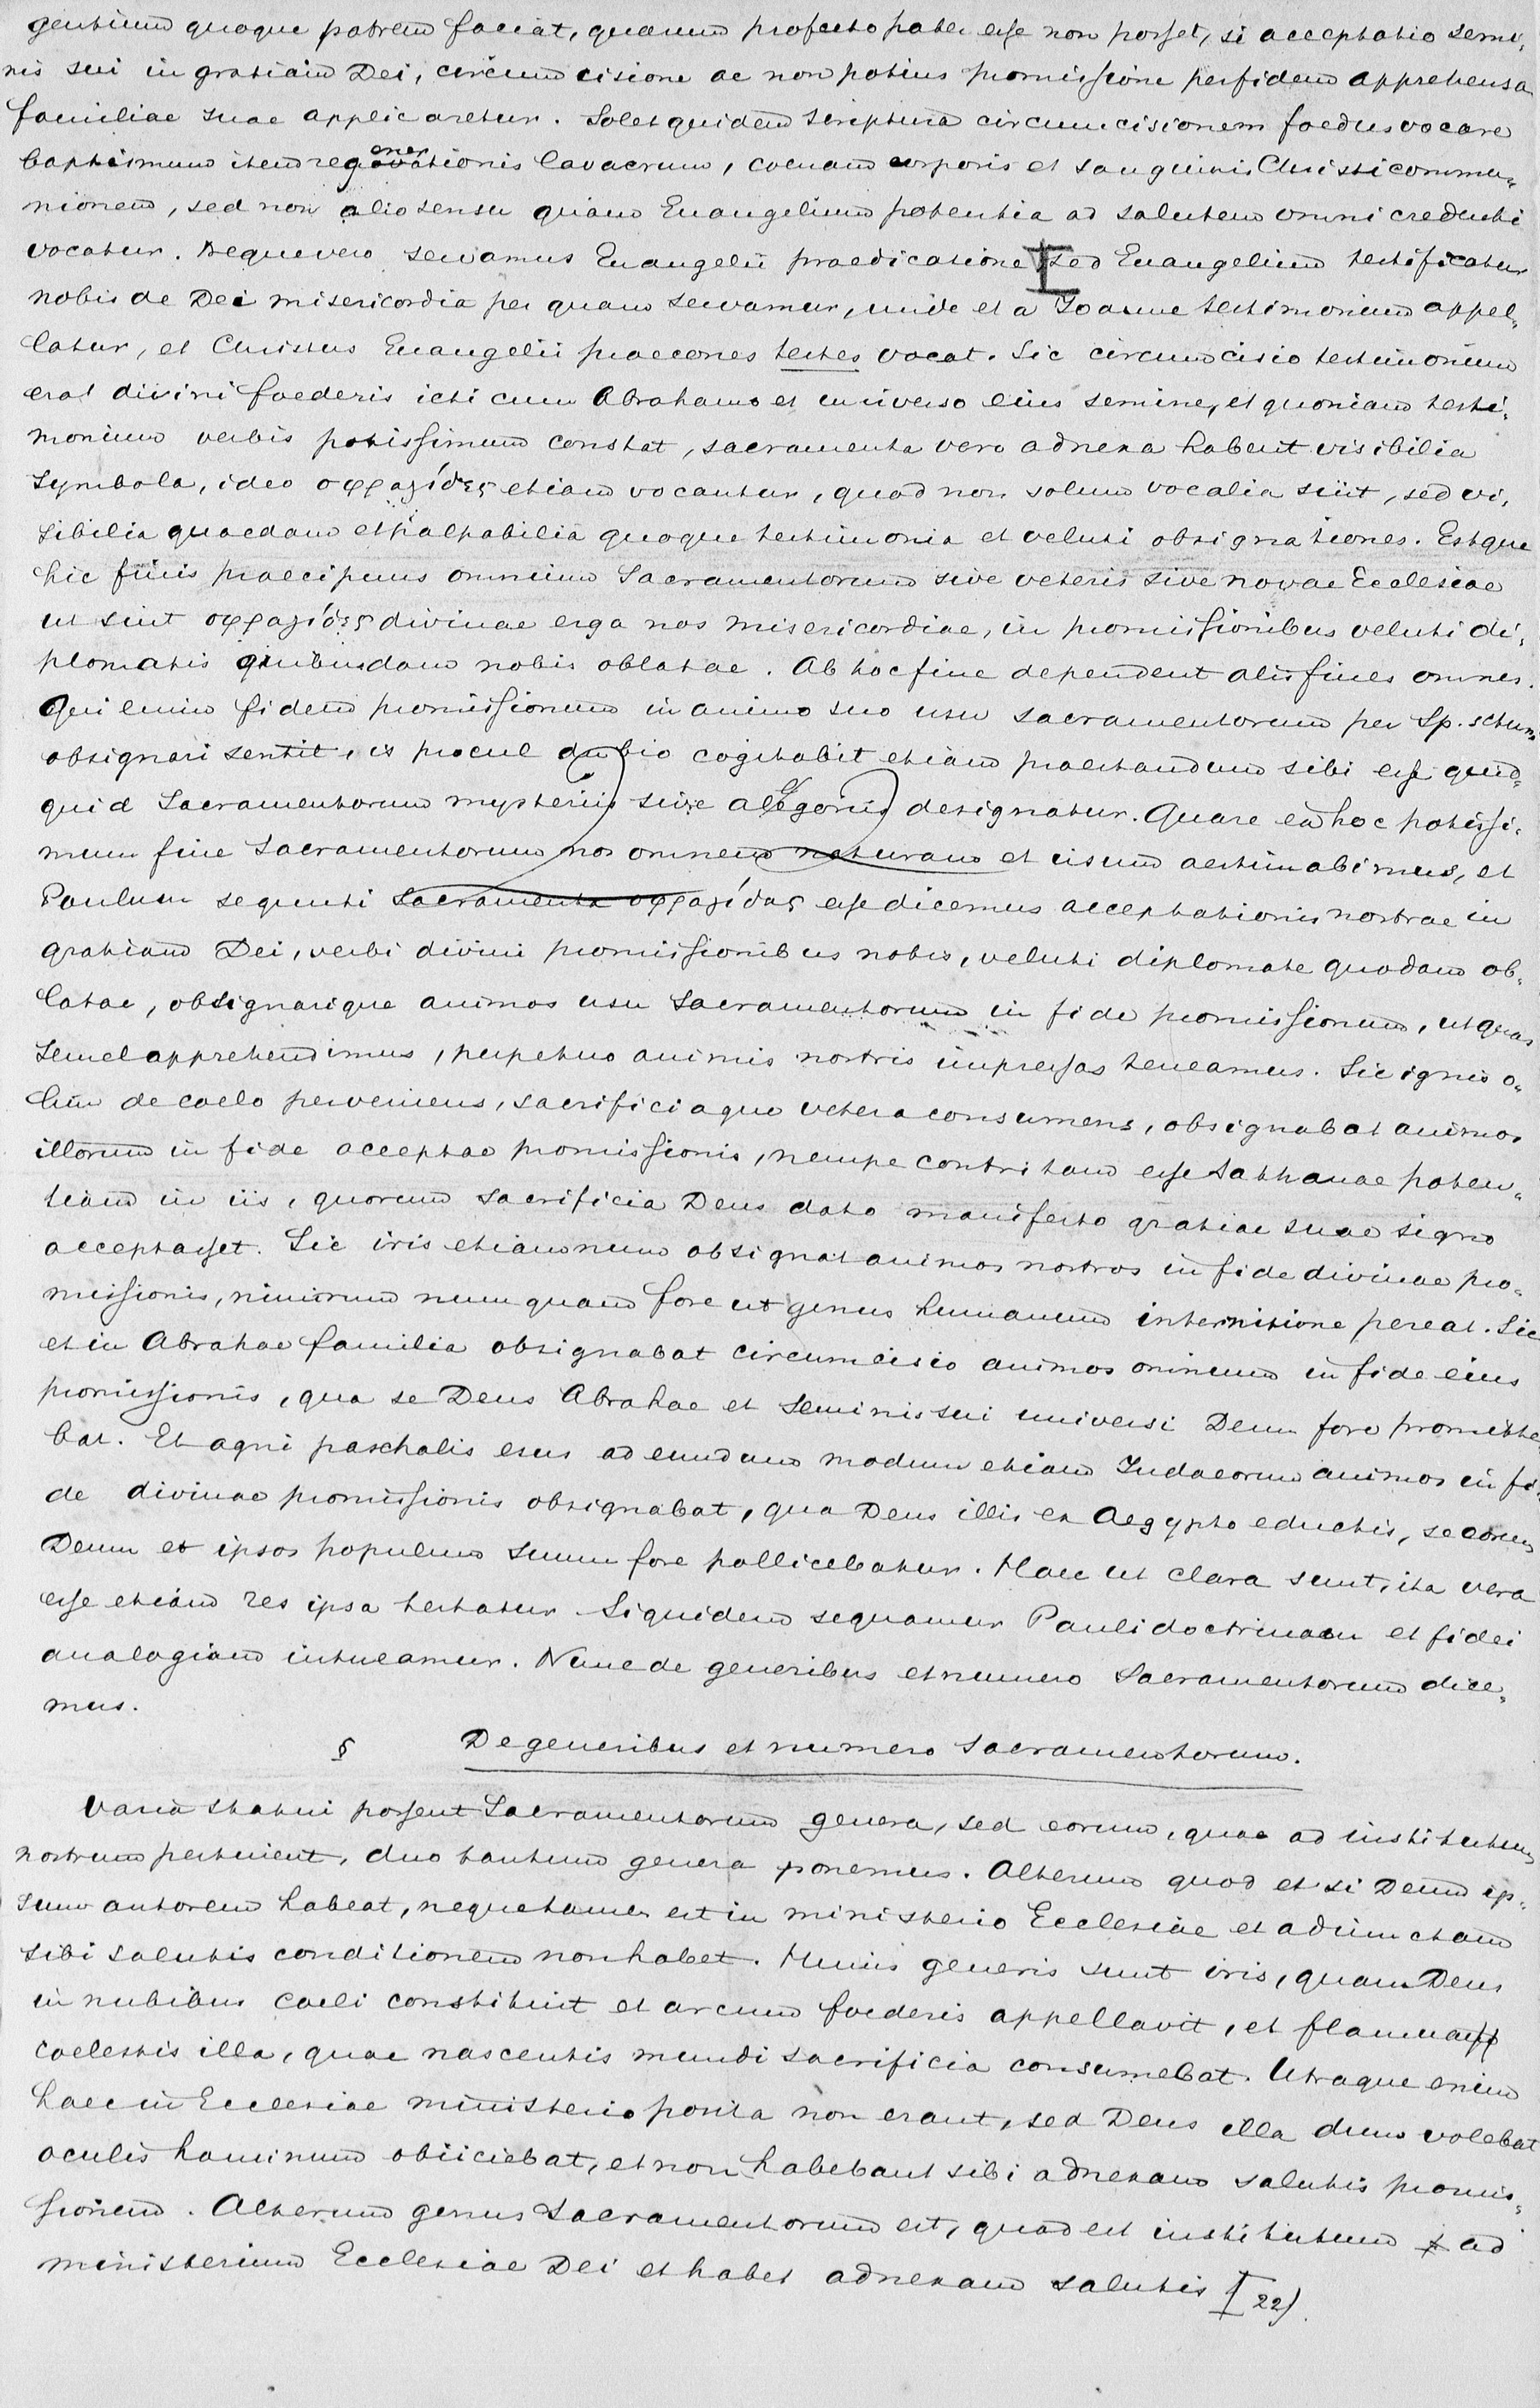 gentium quoque patrem faciat, quarum profecto pater esse non posset, si acceptatio semi¬
nis sui in gratiam Dei, circumcisione ac non potius promissione per fidem apprehensa
familiae suae applicaretur. Solet quidem Scriptura circumcisionem foedus vocare
baptismum item regenerationis lavacrum, coenam corporis et sanguinis Christi commu¬
nionem, sed non alio sensu quam Euangelium potentia ad salutem omni credenti
vocatur. Neque vero servamur Euangelii praedicatione [sed Euangelium testificatur
nobis de Dei misericordia per quam servamur, unde et a Ioanne testimonium appel¬
latur, et Christus Euangelii praecones testes vocat. Sic circumcisio testimonium
erat divini foederis icti cum Abrahamo et universo eius semine, et quoniam testi¬
monium verbis potissimum constat, sacramenta vero adnexa habent visibilia
Symbola, ideo σφραγίδες etiam vocantur, quod non solum vocalia sint, sed vi¬
sibilia quaedam et palpabilia quoque testimonia et veluti obsignationes. Estque
hic finis praecipuus omnium Sacramentorum sive veteris sive novae Ecclesiae
ut sint σφραγίδες divinae erga nos misericordiae, in promissionibus veluti di¬
plomatis quibusdam nobis oblatae. Ab hoc fine dependent alii fines omnes.
Qui enim fidem promissionum in animo suo usu sacramentorum per Sp. sctum
obsignari sentit, is procul dubio cogitabit etiam praestandum sibi esse quid¬
quid Sacramentorum mysteriis sive allegoriis designatur. Quare ex hoc potissi¬
mum fine Sacramentorum nos omnem naturam et usum aestimabimus, et
Paulum sequuti Sacramenta σφραγίδας esse dicemus acceptationis nostrae in
gratiam Dei, verbi divini promissionibus nobis, veluti diplomate quodam ob¬
latae, obsignarique animos usu Sacramentorum in fide promissionum, ut quas
semel apprehendimus, perpetuo animis nostris impressas teneamus. Sic ignis o¬
lim de coelo perveniens, sacrificiaque vetera consumens, obsignabat animos
illorum in fide acceptae promissionis, nempe contritam esse Sathanae poten¬
tiam in iis, quorum sacrificia Deus dato manifesto gratiae suae signo
acceptasset. Sic iris etiamnum obsignat animos nostros in fide divinae pro¬
missionis, nimirum nunquam fore ut genus humanum internitione pereat. Sic
et in Abrahae familia obsignabat circumcisio animos omnium in fide eius
promissionis, qua se Deus Abrahae et Seminis sui universi Deum fore promitte
bat. Et agni paschalis esus ad eundem modum etiam Iudaeorum animos in fi¬
de divinae promissionis obsignabat, qua Deus illis ex Aegypto eductis, se eorum
Deum et ipsos populum suum fore pollicebatur. Haec ut clara sunt, ita vera
esse etiam res ipsa testatur Siquidem sequamur Pauli doctrinam et fidei
analogiam intueamur. Nunc de generibus et numero Sacramentorum dice¬
mus.
§ De generibus et numero Sacramentorum.
Varia statui possent Sacramentorum genera, sed eorum, quae ad institutum
nostrum pertinent, duo tantum genera ponemus. Alterum quod etsi Deum ip¬
sum autorem habeat, neque tamen est in ministerio Ecclesiae et adiunctam
sibi salutis conditionem non habet. Huius generis sunt iris, quam Deus
in nubibus coeli constituit et arcum foederis appellavit, et flamma
coelestis illa, quae nascentis mundi sacrificia consumebat. Utraque enim
haec in Ecclesiae ministerio posita non erant, sed Deus illa dum volebat
oculis hominum obiiciebat, et non habebant sibi adnexam salutis promis¬
sionem. Alterum genus Sacramentorum est, quod est institutum ad
ministerium Ecclesiae Dei et habet adnexam salutis [22)